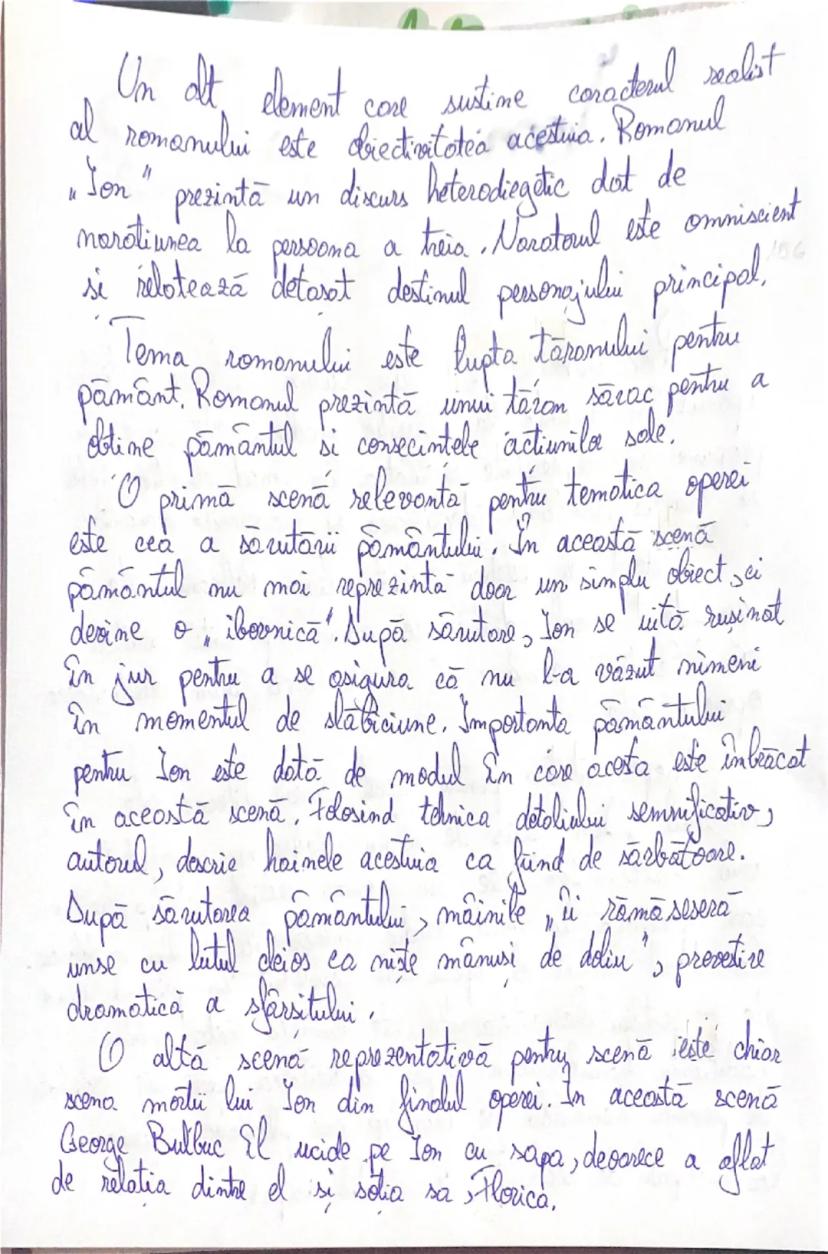 Un alt element care sustine caracterul realist
al romanului este obiectivitatea acestuia. Romanul
„Ion" prezintă un discurs heterodiegetic dat de
narațiunea la persoana a treia. Naratorul este omniscient
și relatează detașat destinul personajului principal.
Tema romanului este lupta țăranului pentru
pământ. Romanul prezintă unui țăran sărac pentru a
obține pământul și consecințele acțiunilor sale.
O prima scenă relevantă pentru tematica operei
este cea a sarutării pământului. În această scenă
pământul nu mai reprezinta doar un simplu obiect, ci
devine o „ibovnică". După sărutare, Ion se uită rușinat
în jur pentru a se asigura că nu l-a văzut nimeni
în momentul de slăbiciune. Importanta pământului
pentru Ion este dată de modul în care acesta este înbrăcat
în această scenă. Folosind tehnica detaliului semnificativ,
autorul, descrie hainele acestuia ca fiind de sărbătoare.
După sărutarea pământului, mâinile „îi rămăseseră
unse cu lutul cleios ca niște mănuși de doliu", prevestire
dramatică a sfârșitului.
O altă scenă reprezentativă pentru scenă este chiar
scena morții lui Ion din finalul operei. În această scenă
George Bulbuc îl ucide pe Ion cu sapa, deoarece a aflat
de relația dintre el și soția sa, Florica.